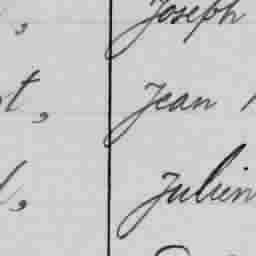 Joseph
Jean
Julien